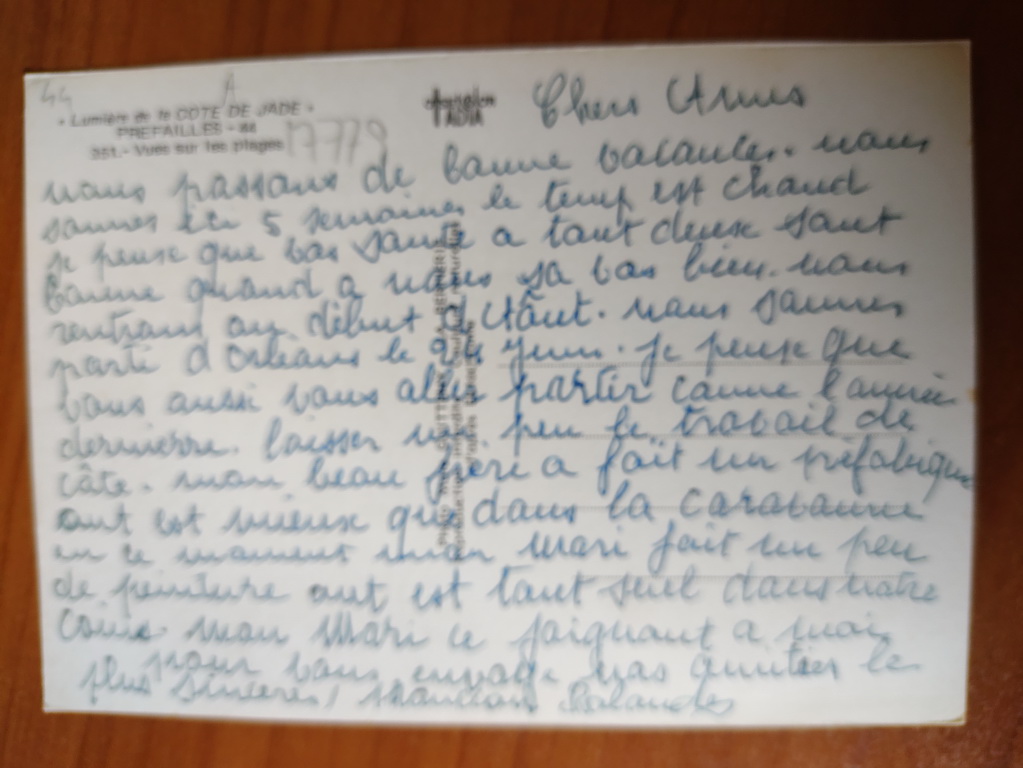 44
A
« Lumière de la COTE DE JADE »
PREFAILLES - 44
351.- Vues sur les plages
17779
Chers Amis
nous passons de bonne vacances. nous
sommes ici 5 semaines le temp est chaud
je pense que vos santé a tout deux sont
bonne quand a nous sa vas bien. nous
rentrons au début d'Août. nous sommes
parti d'Orléans le 24 Juin. je pense que
vous aussi vous alier partir comme l'année
dernierre. laisser un peu le travail de
côte. mon beau frere a fait un préfabrique
ont est mieux que dans la caravanne
en ce moment mon Mari fait un peu
de peinture ont est tout seul dans notre
mon Mari ce joignant a moi
pour vous envoye nos
plus sincères